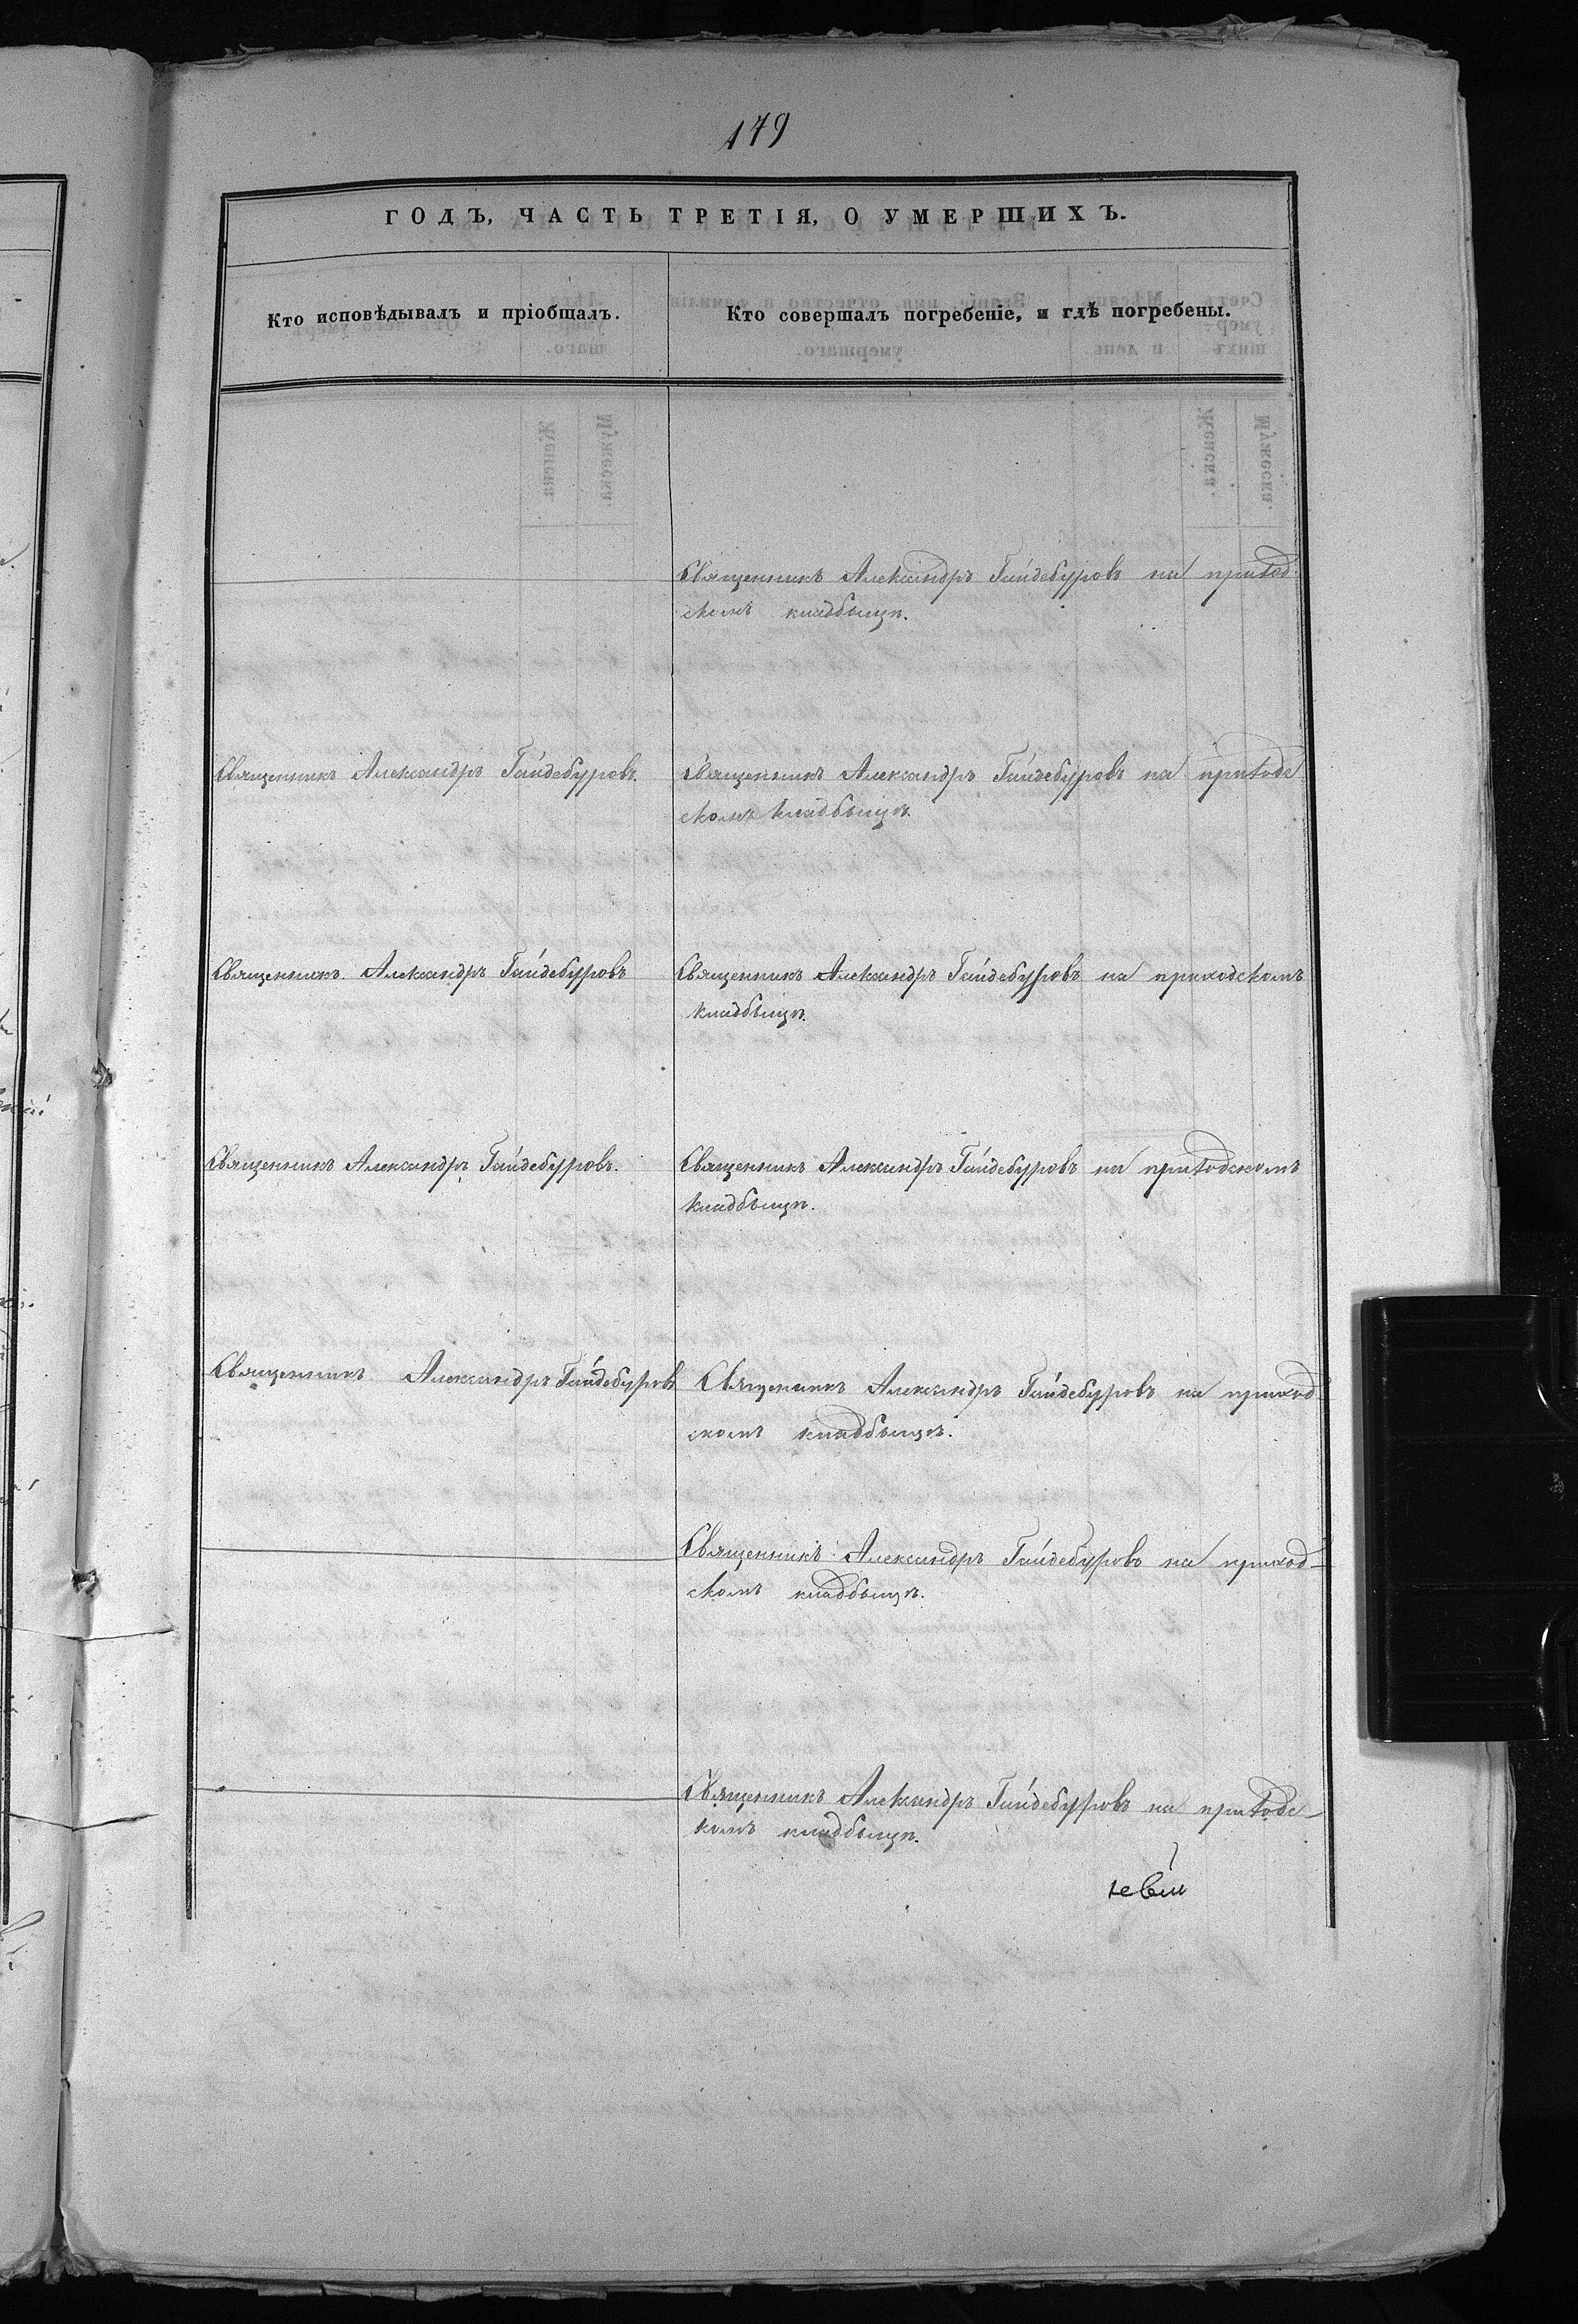 179
ГОДЪ, ЧАСТЬ ТРЕТІЯ, О УМЕРШИХЪ.
Кто исповѣдывалъ и пріобщалъ.
Кто совершалъ погребеніе, и гдѣ погребены.
Священникъ Александръ Гайдебуровъ на приход-
скомъ кладбыщѣ.
Священникъ Александръ Гайдебуровъ.
Священникъ Александръ Гайдебуровъ на приходс
комъ кладбыщѣ.
Священникъ Александръ Гайдебуровъ
Священникъ Александръ Гайдебуровъ на приходскомъ
кладбыщѣ.
Священникъ Александръ Гайдебуровъ.
Священникъ Александръ Гайдебуровъ на приходскомъ
кладбыщѣ.
Священникъ Александръ Гайдебуровъ
Священникъ Александръ Гайдебуровъ на приход-
скомъ кладбыщѣ.
Священникъ Александръ Гайдебуровъ на приход-
скомъ кладбыщѣ.
Священникъ Александръ Гайдебуровъ на приходс-
комъ кладбыщѣ.